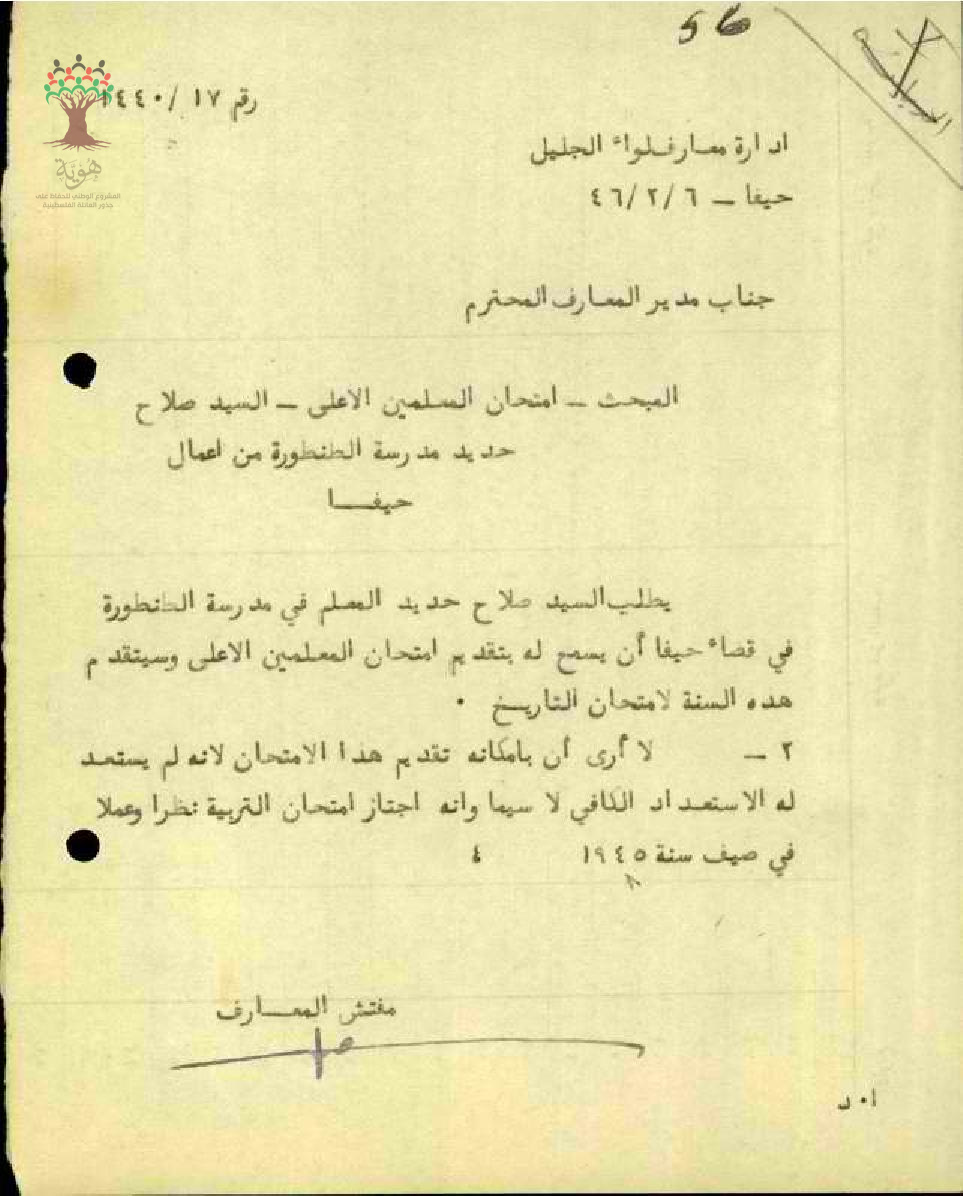 56
رقم ١٧ /١٤٤٠
هُويَّة
المشروع الوطني للحفاظ على
جذور العائلة الفلسطينية
ادارة معارف لواء الجليل
حيفا – ٤٦/٢/٦
جناب مدير المعارف المحترم
المبحث – امتحان المعلمين الاعلى – السيد صلاح
حديد مدرسة الطنطورة من اعمال
حيفــا
يطلب السيد صلاح حديد المعلم في مدرسة الطنطورة
في قضاء حيفا أن يسمح له بتقديم امتحان المعلمين الاعلى وسيتقدم
هذه السنة لامتحان التاريخ .
٢ – لا أرى أن بامكانه تقديم هذا الامتحان لانه لم يستعد
له الاستعداد الكافي لا سيما وانه اجتاز امتحان التربية نظرا وعملا
في صيف سنة ١٩٤٥ ٤
مفتش المعــارف
ا٠د